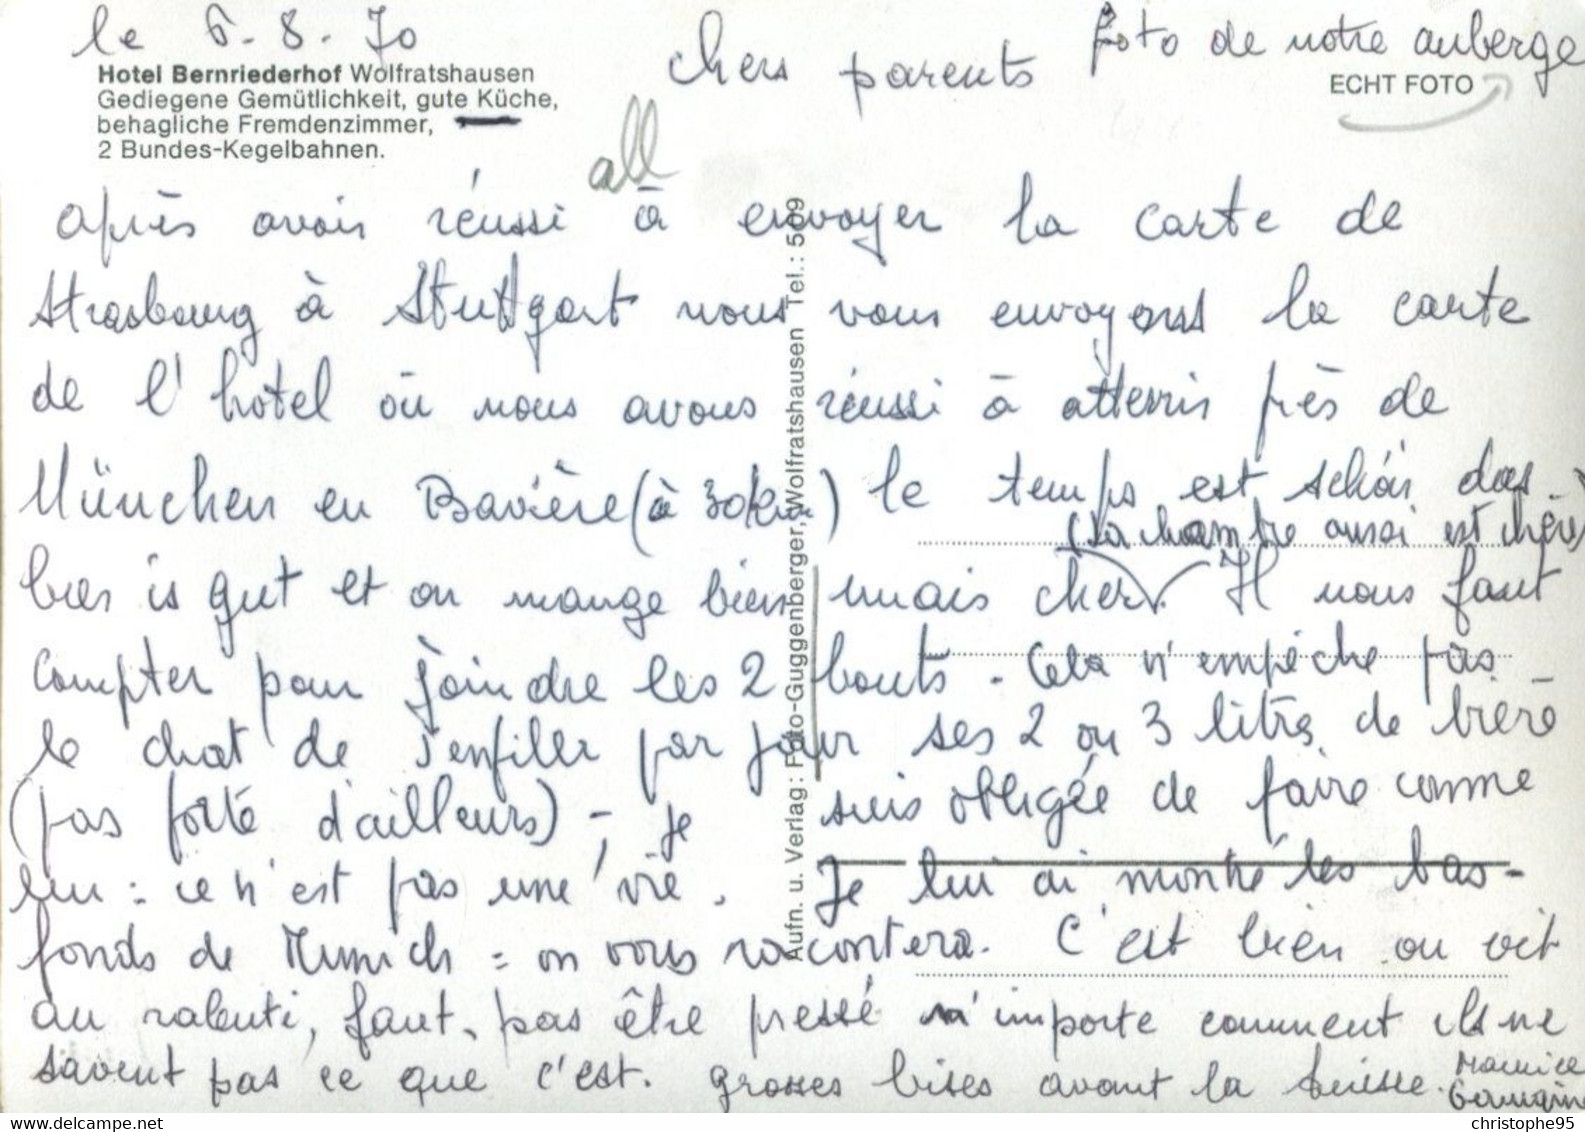 le 6-8-70
Hotel Bernriederhof Wolfratshausen
Gediegene Gemütlichkeit, gute Küche,
behagliche Fremdenzimmer,
2 Bundes-Kegelbahnen.
all
Chers parents
Foto de notre auberge
ECHT FOTO
après avoir réussi à envoyer la carte de
Strasbourg à Stuttgart nous vous envoyons la carte
de l'hotel où nous avons réussi à atterrir près de
München en Bavière (à 30km) le temps est schön das
(la chambre aussi est chère)
bier is gut et on mange bien mais cher. Il nous faut
compter pour joindre les 2 bouts. Cela n'empêche pas
le chat de s'enfiler par jour ses 2 ou 3 litres de bière
(pas forte d'ailleurs) - je suis obligée de faire comme
lui : ce n'est pas une vie. Je lui ai montré les bas-
fonds de Munich : on vous racontera. C'est bien on vit
au ralenti, faut pas être pressé n'importe comment ils ne
savent pas ce que c'est. grosses bises avant la suisse.
Maurice
Germaine
Aufn. u. Verlag: Foto-Guggenberger, Wolfratshausen Tel.: 5009
christophe95